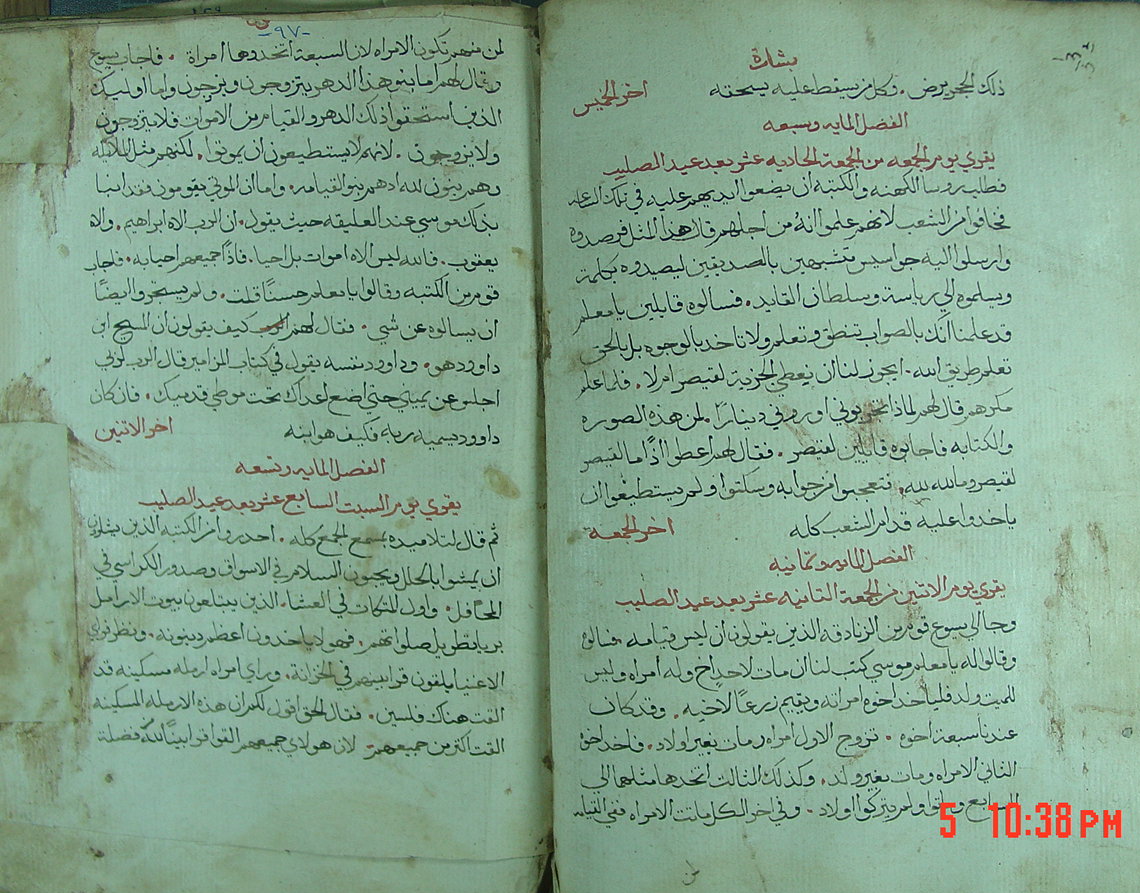 بشارة
ذلك الحجر يرض. وكل من سقط عليه يسحقه
اخر الخميس
الفصل المايه وسبعه
يقري يوم الجمعه من الجمعة الحاديه عشر بعد عيد الصليب
فطلب روسا الكهنه والكتبه ان يضعوا ايديهم عليه في تلك الساعه
فخافوا من الشعب لانهم علموا انه من اجلهم قال هذا المثل فرصدوه
وارسلوا اليه جواسيس متشبهين بالصديقين ليصيدوه بكلمة
ويسلموه الي رياسة وسلطان القايد. فسالوه قايلين يا معلم
قد علمنا انك بالصواب تنطق وتعلم ولا تاخد بالوجوه بل بالحق
تعلم طريق الله. ايجوز لنا ان يعطي الجزية لقيصر ام لا. فلما علم
مكرهم قال لهم لماذا تجربوني اوروني دينارًا. لمن هذه الصوره
والكتابه فاجابوه قايلين لقيصر. فقال لهم اعطوا اذًا ما لقيصر
لقيصر وما لله لله. فتعجبوا من جوابه وسكتوا ولم يستطيعوا ان
ياخدوا عليه قدام الشعب كله
اخر الجمعه
الفصل المايه وتمانيه
يقري يوم الاتنين من الجمعة التانيه عشر بعد عيد الصليب
وجا الي يسوع قوم من الزنادقه الذين يقولون ان ليس قيامه فسالوه
وقالوا له يا معلم موسي كتب لنا ان مات لاحد اخ وله امراه وليس
للميت ولد فلياخد اخوه امراته ويقيم زرعًا لاخيه. وقد كان
عندنا سبعة اخوه. تزوج الاول امراه ومات بغير ولاد. فاخد اخوه
التاني الامراه ومات بغير ولد. وكذلك التالت اتخدها مثلهما الي
السابع وماتوا ولم يتركوا اولاد. وفي اخر الكل ماتت الامراه ففي القيامه
لمن
-٩٧-
لمن منهم تكون الامراه لان السبعة اتخدوها امراة. فاجاب يسوع
وقال لهم اما بنو هذا الدهر يتزوجون ويزوجون واما اوليك
الذين استحقوا ذلك الدهر والقيام من الاموات فلا يتزوجون
ولا يزوجون. لانهم لا يستطيعون ان يموتوا. لكنهم مثل الملايكه
وهم بنون لله اد هم بنو القيامه. واما ان الموتي يقومون فقد انبا
بذلك موسي عند العليقه حيث يقول. ان الرب الاه ابراهيم. والاه
يعقوب. فالله ليس الاه اموات بل احيا. فاذًا جميعهم احيا به. فاجاب
قوم من الكتبه وقالوا يا معلم حسنًا قلت. ولم يستجروا ايضًا
ان يسالوه عن شي. فقال لهم كيف يقولون ان المسيح ابن
داوود هو. وداوود نفسه يقول في كتاب المزامير قال الرب لربي
اجلس عن يميني حتي اضع اعداك تحت موطي قدميك. فان كان
داوود يسميه ربه فكيف هو ابنه
اخر الاتنين
الفصل المايه وتسعه
يقري يوم السبت السابع عشر بعد عيد الصليب
ثم قال لتلاميده بسمع الجمع كله. احدروا من الكتبه الذين يشاون
ان يمشوا بالحلل ويحبون السلام في الاسواق وصدور الكراسي في
المحافل. واول المتكات في العشا. الذين يبتلعون بيوت الارامل
بريا تطويل صلواتهم. فهولا ياخدون اعظم دينونه. ونظر فراي
الاغنيا يلقون قرابينهم في الخزانة. وراي امراه ارمله مسكينه قد
القت هناك فلسين. فقال الحق اقول لكم ان هذه الارمله المسكينه
القت اكثر من جميعهم. لان هولاي جميعهم القوا قرابينًا لله فضلة
5 10:38 PM